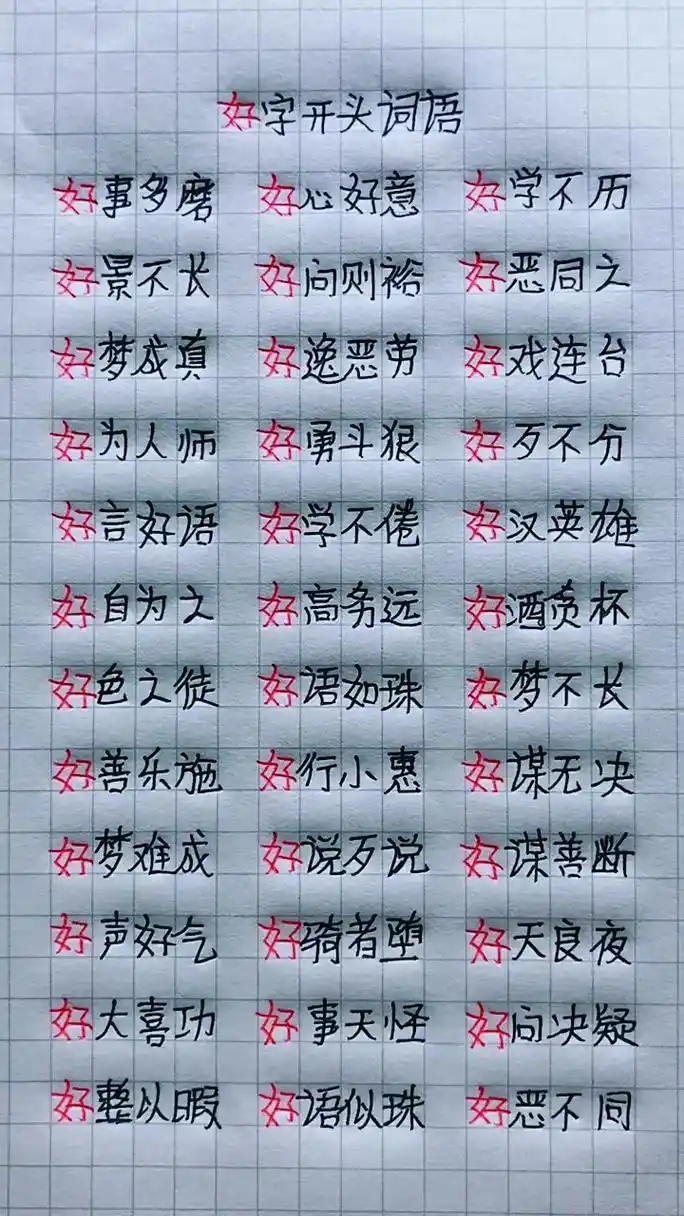 好字开头词语
好事多磨 好心好意 好学不历
好景不长 好问则裕 好恶同之
好梦成真 好逸恶劳 好戏连台
好为人师 好勇斗狠 好歹不分
好言好语 好学不倦 好汉英雄
好自为之 好高务远 好酒贪杯
好色之徒 好语如珠 好梦不长
好善乐施 好行小惠 好谋无决
好梦难成 好说歹说 好谋善断
好声好气 好骑者堕 好天良夜
好大喜功 好事天怪 好问决疑
好整以暇 好语似珠 好恶不同